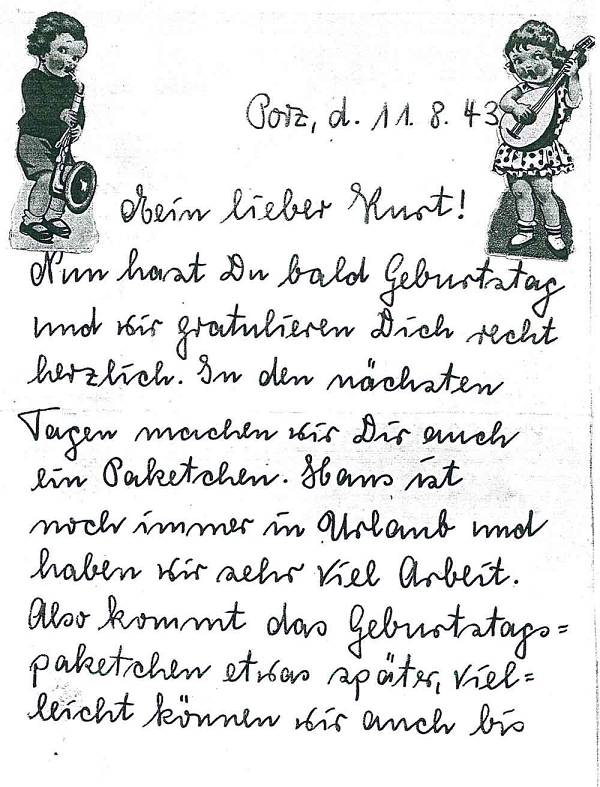 Porz, d. 11. 8. 43
Mein lieber Kurt!
Nun hast Du bald Geburtstag
und wir gratulieren Dich recht
herzlich. In den nächsten
Tagen machen wir Dir auch
ein Paketchen. Hans ist
noch immer in Urlaub und
haben wir sehr viel Arbeit.
Also kommt das Geburtstags=
paketchen etwas später, viel=
leicht können wir auch bis